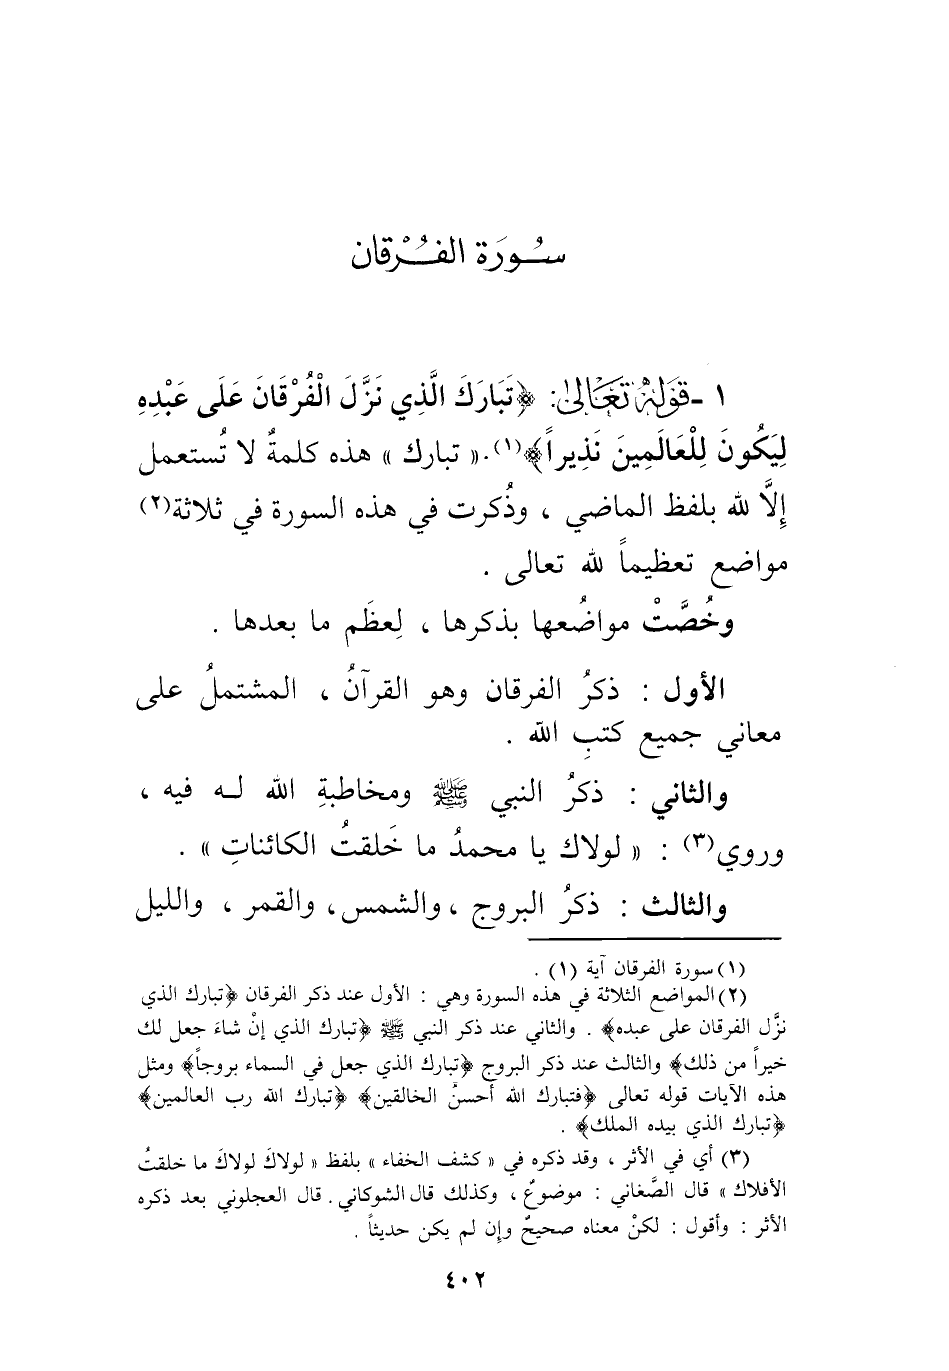 سُورَة الفُرْقان
١ - قَوْلُهُ تَعَالَىٰ: ﴿تَبَارَكَ الَّذِي نَزَّلَ الْفُرْقَانَ عَلَى عَبْدِهِ
لِيَكُونَ لِلْعَالَمِينَ نَذِيراً﴾(١).« تبارك » هذه كلمةٌ لا تُستعمل
إِلَّا لله بلفظ الماضي ، وذُكرت في هذه السورة في ثلاثة(٢)
مواضع تعظيماً لله تعالى .
وخُصَّتْ مواضُعها بذكرها ، لِعظَم ما بعدها .
الأول : ذكرُ الفرقان وهو القرآنُ ، المشتملُ على
معاني جميع كتبِ الله .
والثاني : ذكرُ النبي ﷺ ومخاطبةِ الله لـه فيه ،
وروي(٣) : « لولاك يا محمدُ ما خَلقتُ الكائناتِ » .
والثالث : ذكرُ البروج ، والشمس، والقمر ، والليل
(١) سورة الفرقان آية (١) .
(٢) المواضع الثلاثة في هذه السورة وهي : الأول عند ذكر الفرقان ﴿تبارك الذي
نزَّل الفرقان على عبده﴾ . والثاني عند ذكر النبي ﷺ ﴿تبارك الذي إنْ شاءَ جعل لك
خيراً من ذلك﴾ والثالث عند ذكر البروج ﴿تبارك الذي جعل في السماء بروجاً﴾ ومثل
هذه الآيات قوله تعالى ﴿فتبارك الله أحسنُ الخالقين﴾ ﴿تبارك الله رب العالمين﴾
﴿تبارك الذي بيده الملك﴾ .
(٣) أي في الأثر ، وقد ذكره في « كشف الخفاء » بلفظ « لولاكَ لولاكَ ما خلقتُ
الأفلاك » قال الصَّغاني : موضوعٌ ، وكذلك قال الشوكاني . قال العجلوني بعد ذكره
الأثر : وأقول : لكنْ معناه صحيحٌ وإن لم يكن حديثاً .
٤٠٢